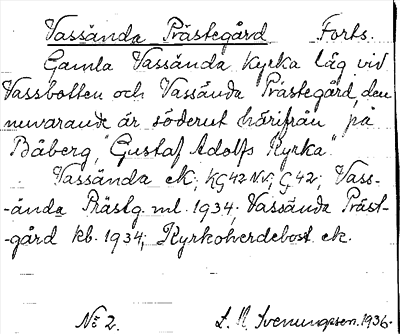 Vassända Prästegård Forts.
Gamla Vassända Kyrka låg vid
Vassbotten och Vassända Prästegård, den
nuvarande är söderut härifrån på
Båberg, "Gustaf Adolfs Kyrka".
Vassända ek. KG42NV, G42; Vass-
-ända Prästg. ml. 1934, Vassända Präst-
-gård kb. 1934; Kyrkoherdebost. ek.
No 2. L. N. Svenungsson. 1936.